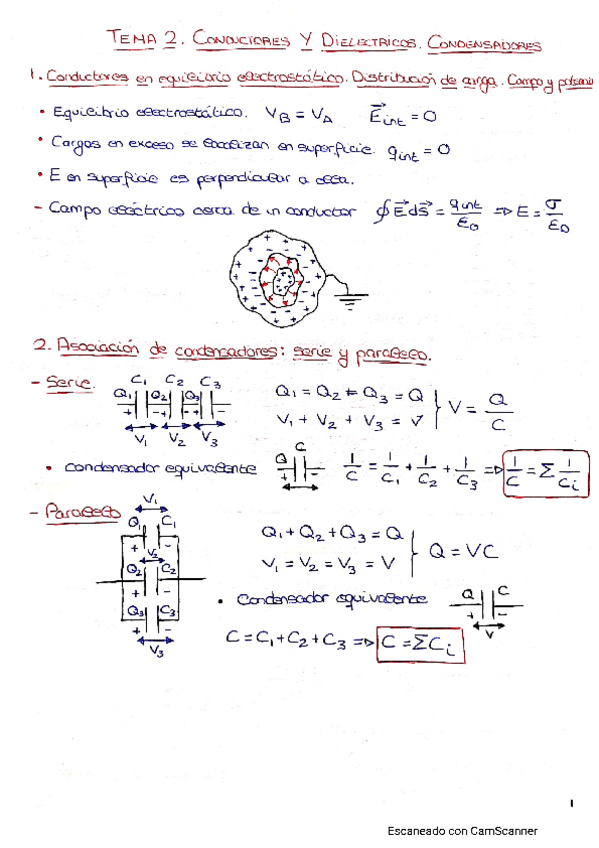 TEMA 2. CONDUCTORES Y DIELECTRICOS. CONDENSADORES
1. Conductores en equilibrio electrostático. Distribución de carga. Campo y potencial
• Equilibrio electrostático. V_B = V_A   E⃗_int = 0
• Cargas en exceso se localizan en superficie. q_int = 0
• E en superficie es perpendicular a ella.
– Campo eléctrico cerca de un conductor ∮E⃗ds⃗ = q_int/ε₀ ⇒ E = σ/ε₀
2. Asociación de condensadores: serie y paralelo.
– Serie.
C₁ C₂ C₃
Q₁ Q₂ Q₃
+ – + – + –
V₁ V₂ V₃
Q₁ = Q₂ = Q₃ = Q
V₁ + V₂ + V₃ = V
} V = Q/C
• Condensador equivalente
C
Q
+ –
1/C = 1/C₁ + 1/C₂ + 1/C₃ ⇒ 1/C = Σ 1/Cᵢ
– Paralelo
V₁
Q₁ C₁
+ –
V₂
Q₂ C₂
+ –
Q₃ C₃
+ –
V₃
Q₁ + Q₂ + Q₃ = Q
V₁ = V₂ = V₃ = V
} Q = VC
• Condensador equivalente
Q C
+ –
V
C = C₁ + C₂ + C₃ ⇒ C = ΣCᵢ
1
Escaneado con CamScanner